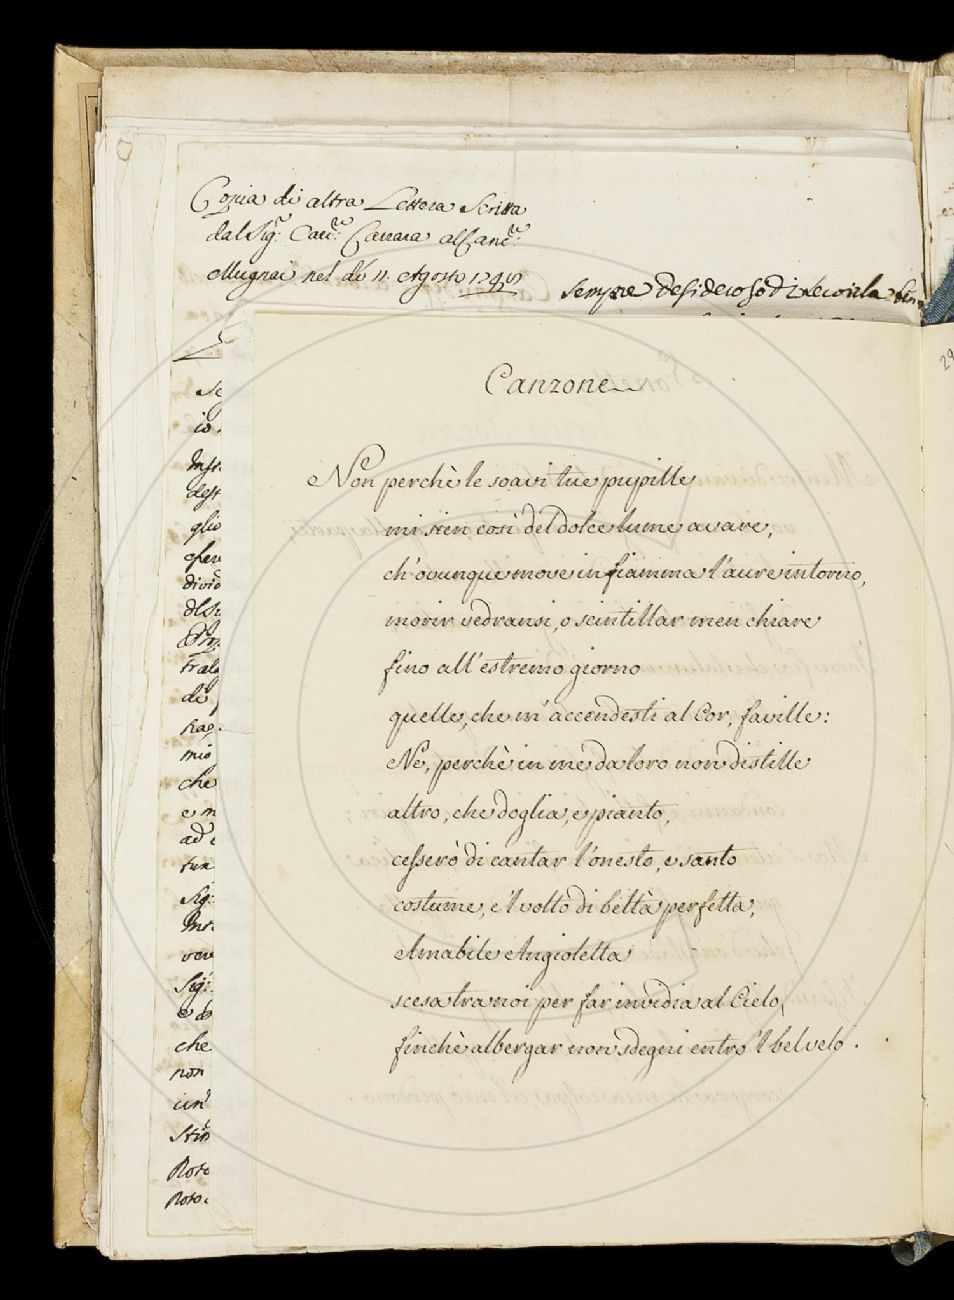 Copia di altra Lettera Scritta
dal Sig.r Cav.re Carrara al Canc.re
Mugnai nel dí 11. Agosto
Sempre desideroso di
Canzone
Non perchè le soavi tue pupille
mi sien così del dolce lume avare,
ch'ovunque move infiamma l'aure intorno,
morir vedransi, o scintillar men chiare
fino all'estremo giorno
quelle, che m'accendesti al Cor, faville:
Ne, perchè in me da loro non distille
altro, che doglia, e pianto,
cesserò di cantar l'onesto, e santo
costume, e 'l volto di beltà perfetta,
Amabile Angioletta
scesa tra noi per far invidia al Cielo,
finchè albergar non sdegni entro 'l bel velo.
io
glio
di
mio
che
e m
ad
Sig:
Sig:
che
non
un'
29